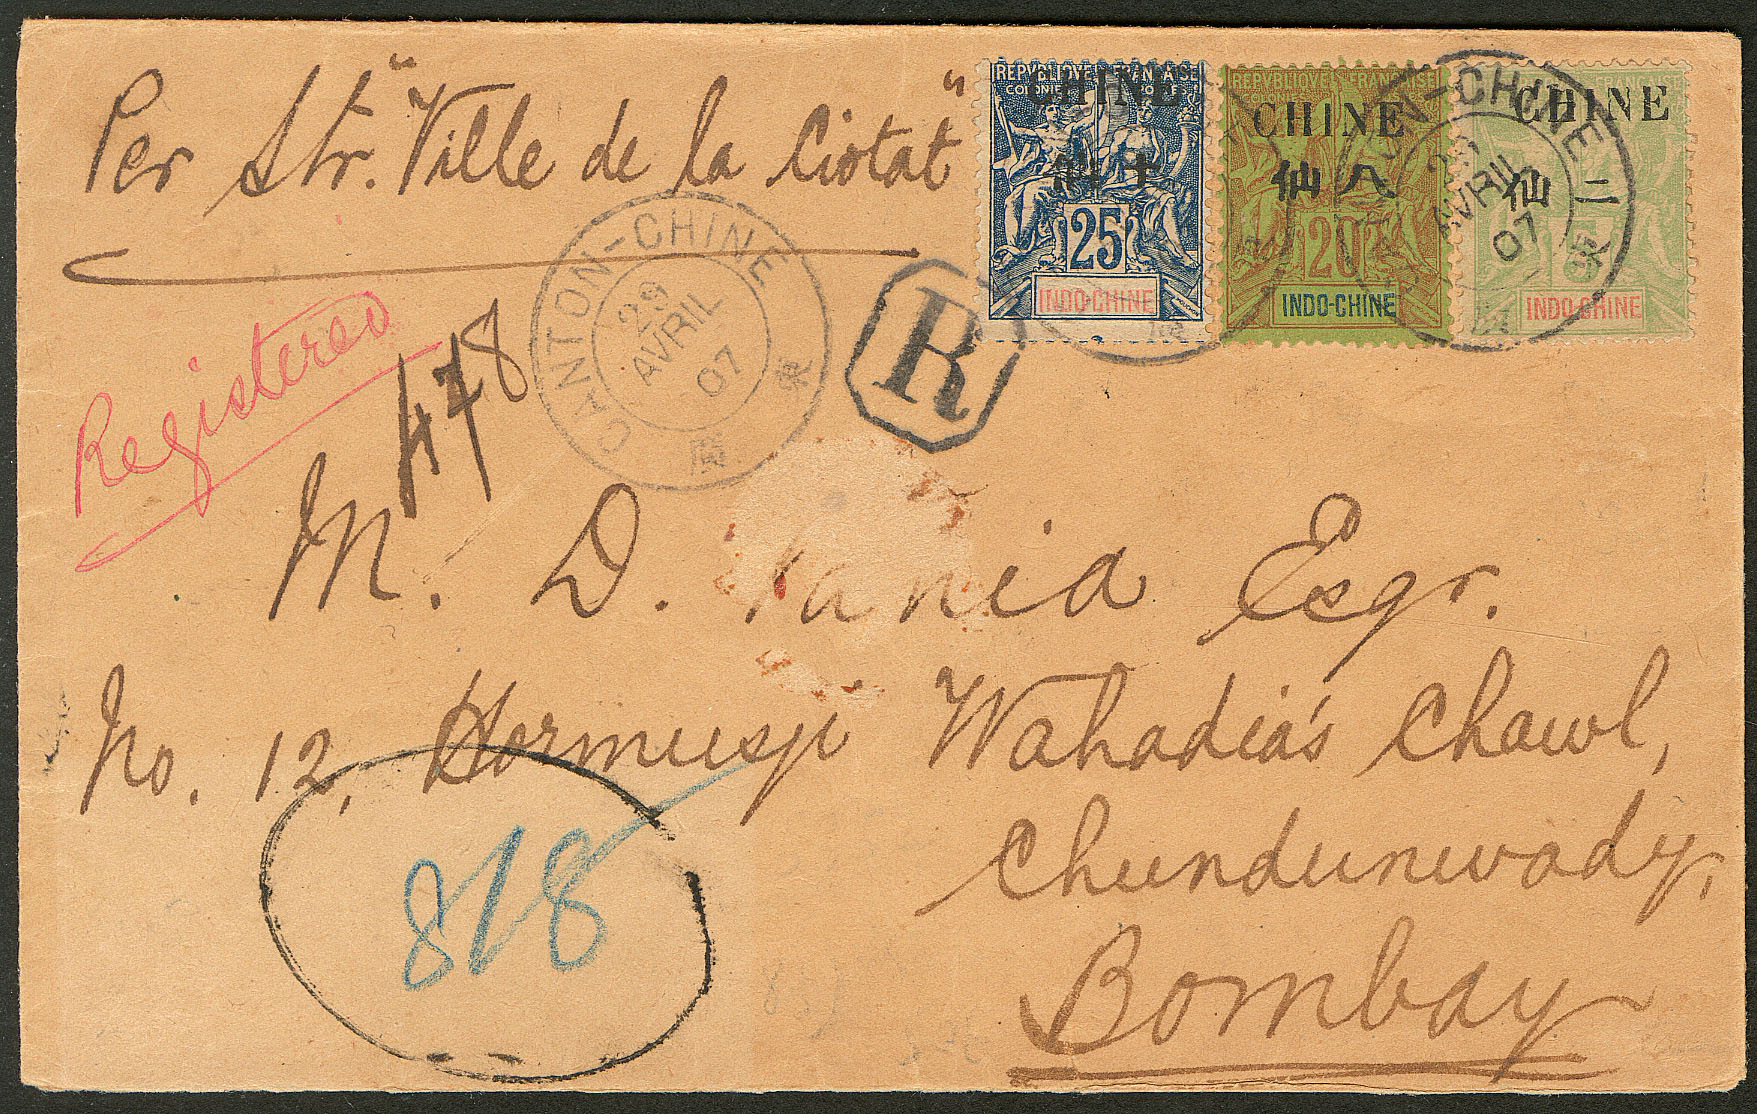 Per Str. "Ville de la Ciotat"
REPVBLIQVE FRANÇAISE
COLONIES POSTES
CHINE
仙十
25
INDO-CHINE
REPVBLIQVE FRANÇAISE
CHINE
仙八
20
INDO-CHINE
FRANÇAISE
CHINE
仙二
5
INDO-CHINE
CANTON-CHINE
29
AVRIL
07
CHINE
AVRIL
07
R
Registered
478
M. D. Esqr.
No. 12, Hormusji Wahadia's Chawl,
Chundunwady,
Bombay
818